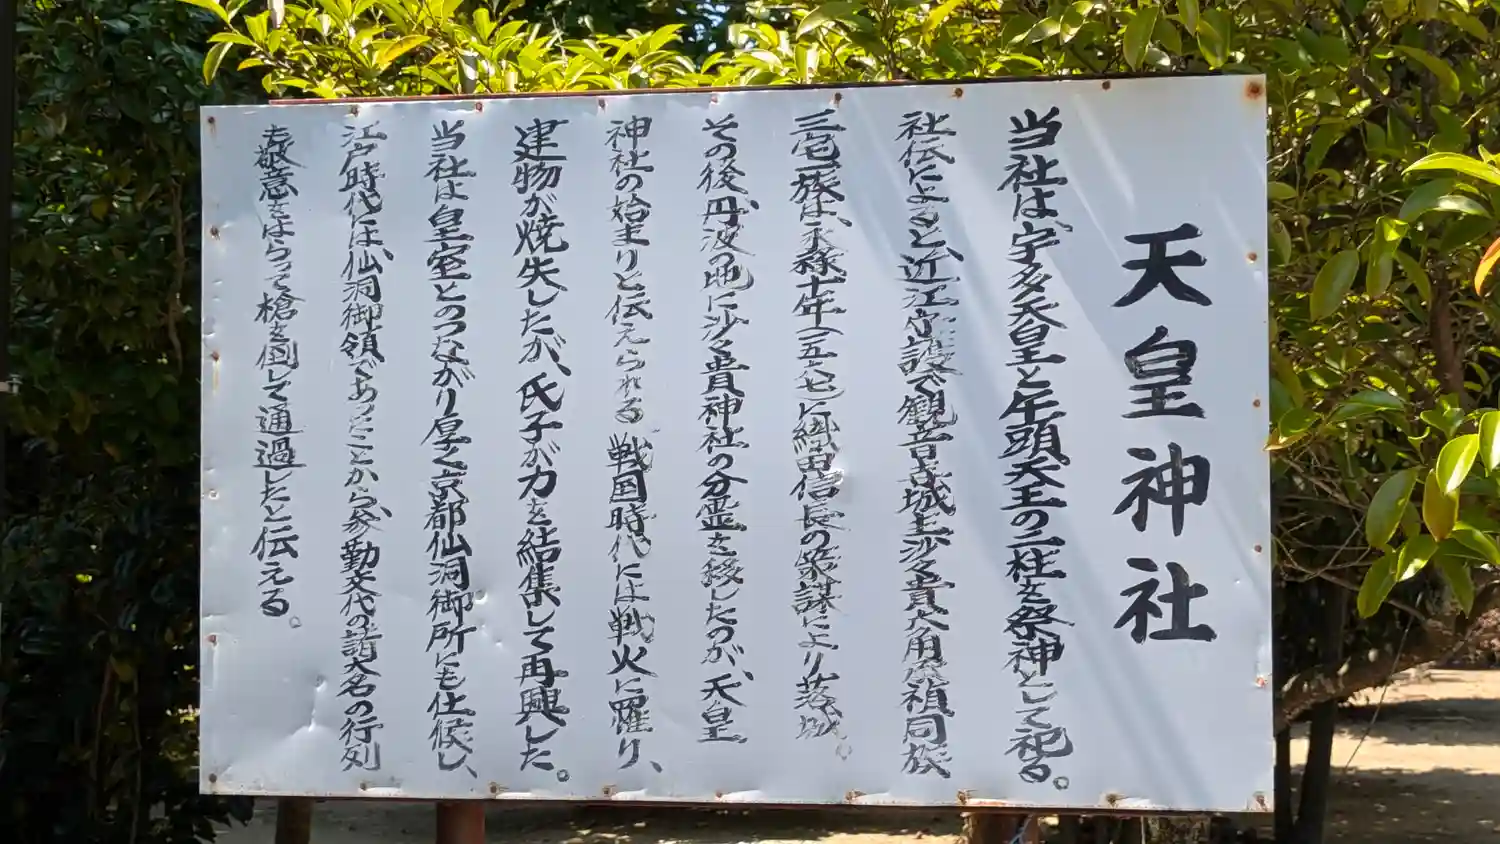 天皇神社
当社は、宇多天皇と牛頭天王の二柱を祭神として祀る。
社伝によると、近江守護で観音寺城主沙々貴六角承禎同族
三宅一族は、永禄十年（一五六七）に織田信長の策謀により落城。
その後、丹波の地に沙々貴神社の分霊を移したのが、天皇
神社の始まりと伝えられる。戦国時代には戦火に罹り、
建物が焼失したが、氏子が力を結集して再興した。
当社は皇室とのつながり厚く京都仙洞御所にも仕候し、
江戸時代には、仙洞御領であったことから、参勤交代の諸大名の行列
も敬意をはらって槍を倒して通過したと伝える。